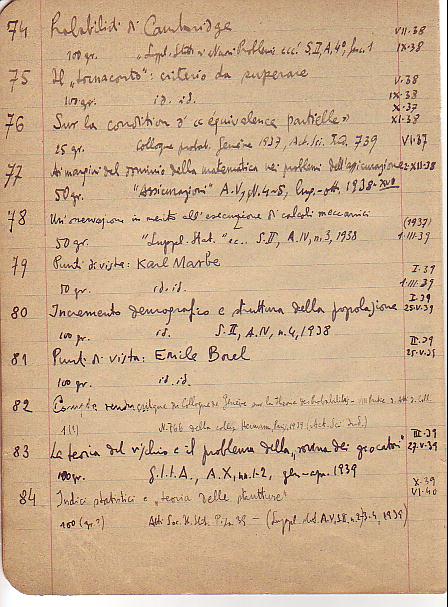 74 Probabilisti di Cambridge VII-38
100 gr. "Suppl. Stat. ai Nuovi Problemi ecc." S.II, A.4°, fasc. 1 IX-38
75 Il "tornaconto": criterio da superare V.38
100 gr. id. id. IX-38
76 Sur la condition d'«équivalence partielle» X-37 XI-38
25 gr. Colloque probab. Genève 1937, Act. Sci. 739 VI-37
77 Ai margini del dominio della matematica nei problemi dell'assicurazione 2-XII-38
50 gr. "Assicurazioni" A.V, N.4-5, 1938-XVI
78 Un'osservazione in merito all'esecuzione di calcoli meccanici (1937)
50 gr. "Suppl. Stat." ecc. S.II, A.IV, n.3, 1938 1-III-39
79 Punti di vista: Karl Marbe I.39
50 gr. id. id. 1-III-39
80 Incremento demografico e struttura della popolazione I.39 25-V-39
100 gr. id. S.II, A.IV, n.4, 1938
81 Punti di vista: Emile Borel II.39
100 gr. id. id. 25-V-39
82 Compte rendu critique du Colloque de Genève sur la Théorie des Probabilités
N. 766 della collez. Hermann, Paris, 1939 (Act. Sci. Ind.)
83 La teoria del rischio e il problema della "rovina dei giocatori" III-39 27-V-39
100 gr. G.I.I.A., A.X, nn.1-2, gen-apr. 1939
84 Indici statistici e "teoria delle strutture" X-39 VI-40
100 (gr.?) Atti Soc. It. Stat. Pisa 39 - (Suppl. stat. A.V, S.II, n. 2-3-4, 1939)